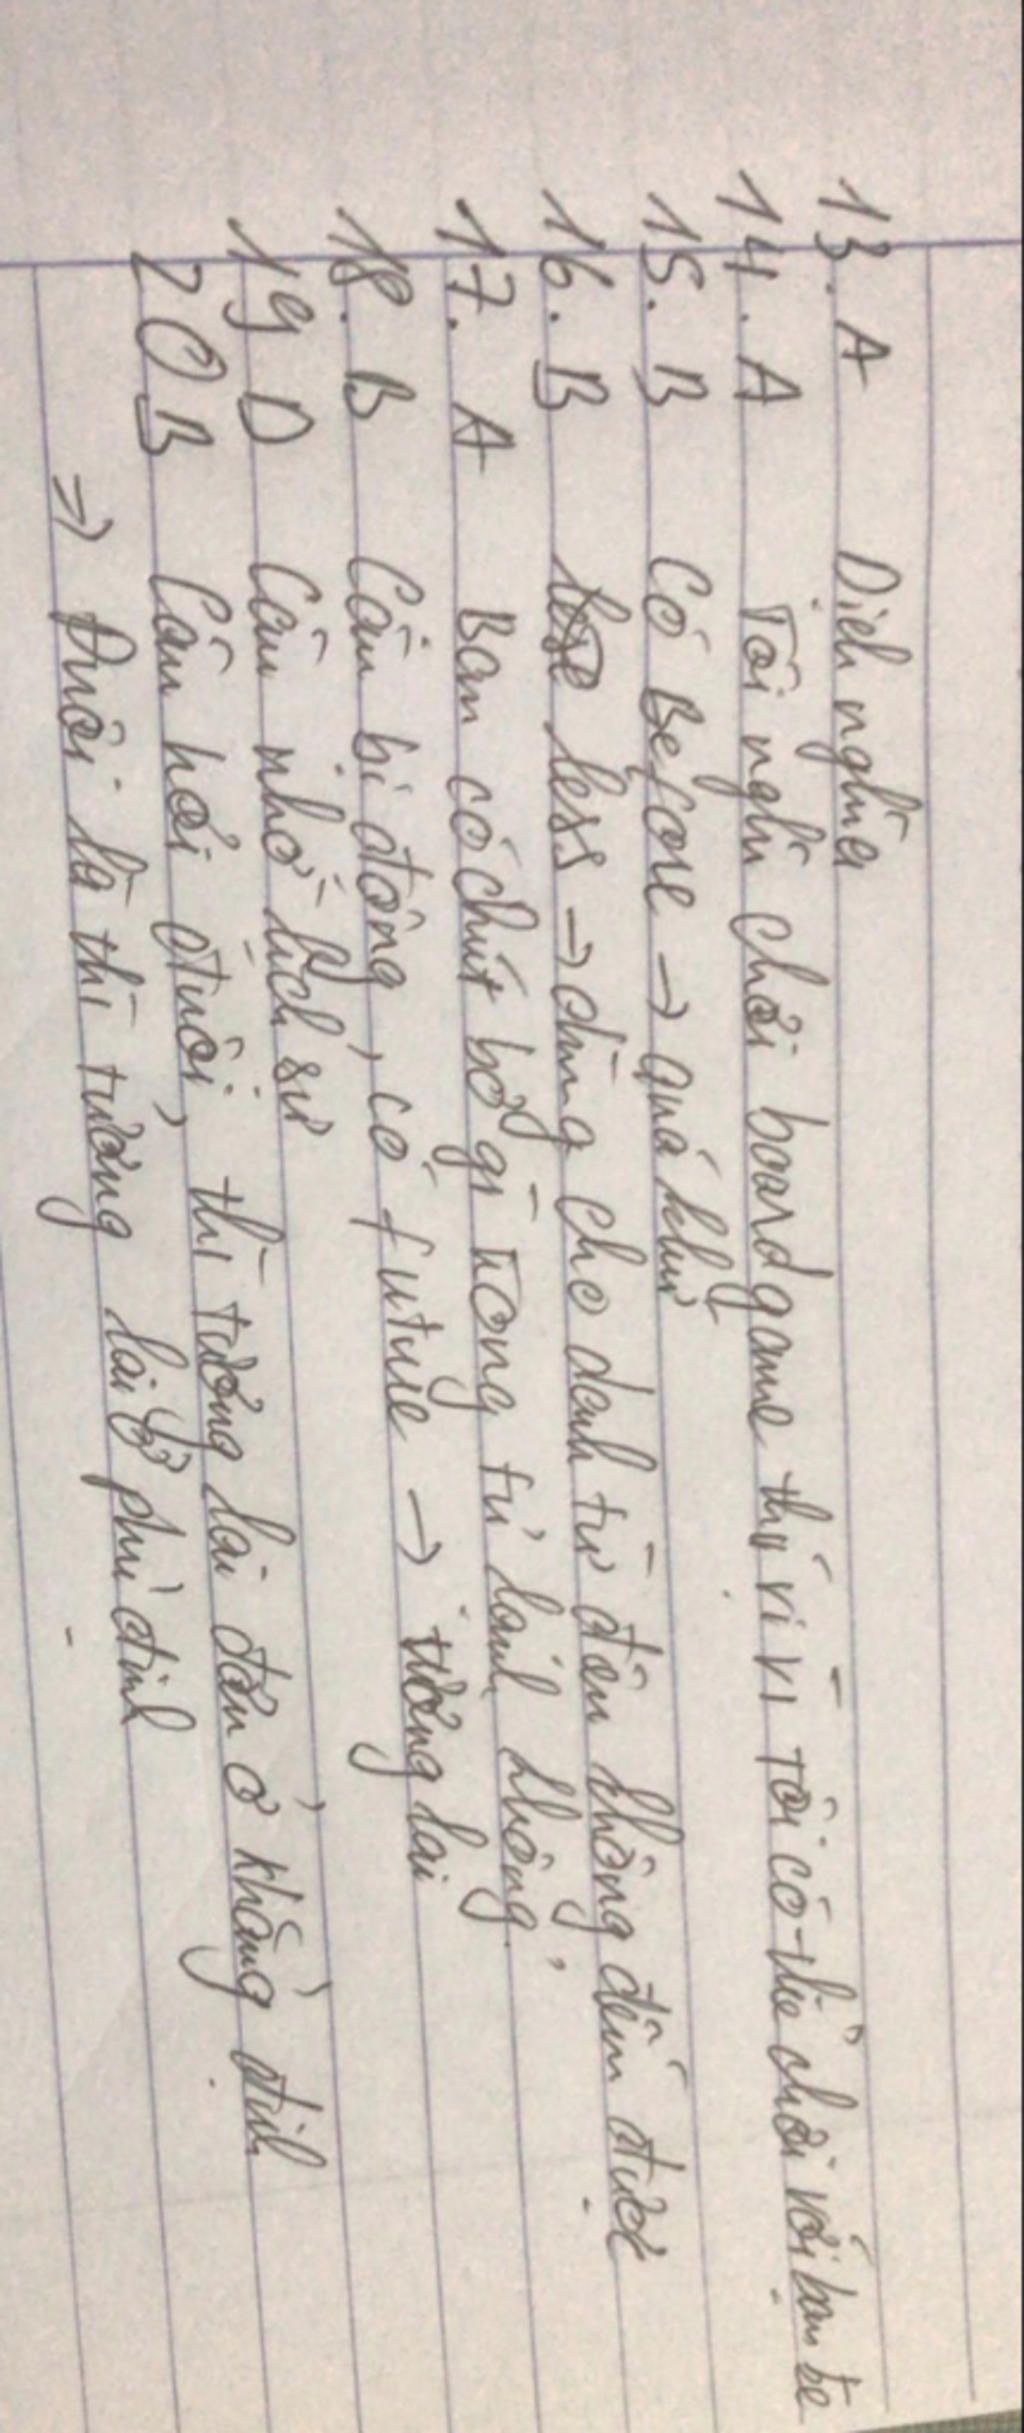 13. A Dịch nghĩa
14. A Tôi nghĩ chơi boardgame thú vị vì tôi có thể chơi với bạn bè
15. B Có Before → quá khứ
16. B less → dùng cho danh từ đếm không đếm được
17. A Bạn có chút bơ gì trong tủ lạnh không.
18. B Câu bị động, có future → tương lai
19 D Câu nhờ lịch sự
20 B Câu hỏi đuôi, thì tương lai đơn ở khẳng định
⇒ Đuôi là thì tương lai ở phủ định